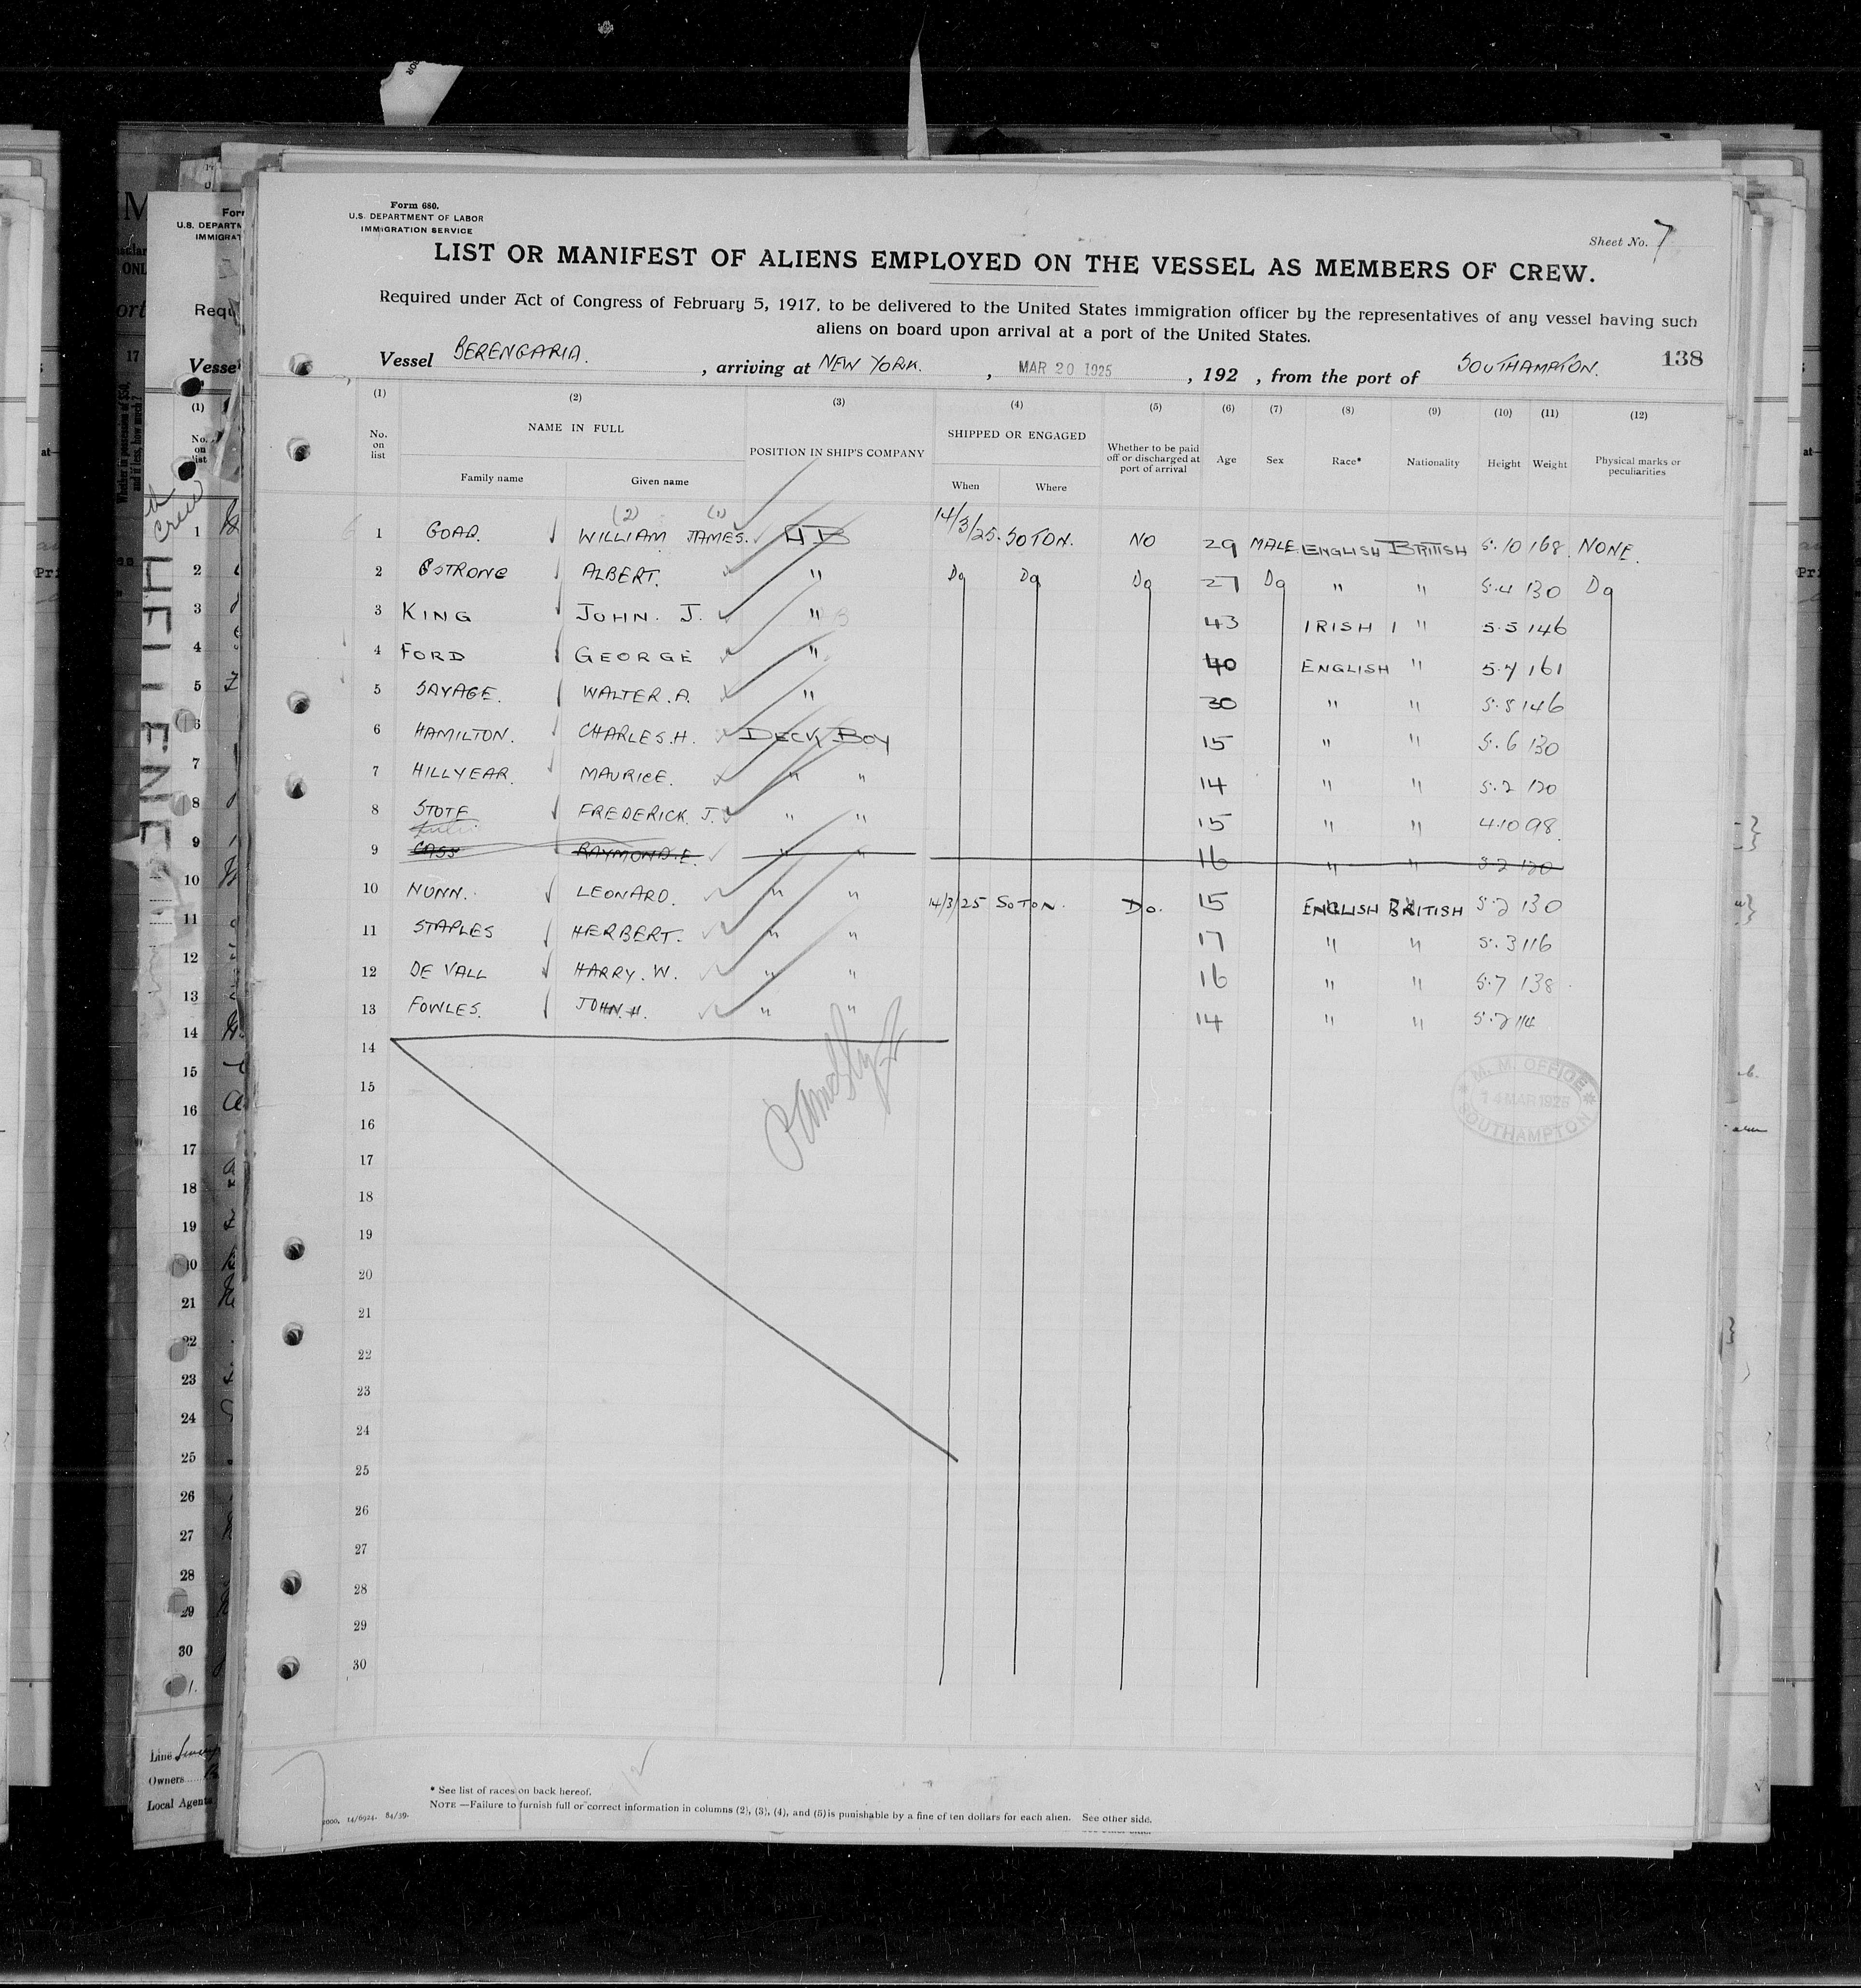 Form 680.
U.S. DEPARTMENT OF LABOR
IMMIGRATION SERVICE
Sheet No. 7
LIST OR MANIFEST OF ALIENS EMPLOYED ON THE VESSEL AS MEMBERS OF CREW.
Required under Act of Congress of February 5, 1917, to be delivered to the United States immigration officer by the representatives of any vessel having such
aliens on board upon arrival at a port of the United States.
138
Vessel BERENGARIA. , arriving at NEW YORK. , MAR 20 1925 , 192 , from the port of SOUTHAMPTON.
(1) (2) (3) (4) (5) (6) (7) (8) (9) (10) (11) (12)
No. on list NAME IN FULL POSITION IN SHIP'S COMPANY SHIPPED OR ENGAGED Whether to be paid off or discharged at port of arrival Age Sex Race* Nationality Height Weight Physical marks or peculiarities
Family name Given name When Where
(2) (1)
1 GOAD. WILLIAM JAMES. 14/3/25. SOTON. NO 29 MALE. ENGLISH BRITISH 5.10 168 NONE.
2 OSTRONG ALBERT. " Do Do Do 27 Do " " 5.4 130 Do
3 KING JOHN. J. " 43 IRISH " 5.5 146
4 FORD GEORGE " 40 ENGLISH " 5.7 161
5 SAVAGE. WALTER. A. " 30 " " 5.8 146
6 HAMILTON. CHARLES. H. DECK BOY 15 " " 5.6 130
7 HILLYEAR. MAURICE. " " 14 " " 5.2 120
8 STOTE FREDERICK. J. " " 15 " " 4.10 98.
9 CASS RAYMOND. E. " " 16 " " 5.2 120
10 NUNN. LEONARD. " " 14/3/25 SOTON. Do. 15 ENGLISH BRITISH 5.2 130
11 STAPLES HERBERT. " " 17 " " 5.3 116
12 DE VALL HARRY. W. " " 16 " " 5.7 138
13 FOWLES. JOHN. H. " " 14 " " 5.2 114
14
15
16
17
18
19
20
21
22
23
24
25
26
27
28
29
30
M. M. OFFICE
14 MAR 1925
SOUTHAMPTON
* See list of races on back hereof.
NOTE —Failure to furnish full or correct information in columns (2), (3), (4), and (5) is punishable by a fine of ten dollars for each alien. See other side.
14/6924. 84/39.